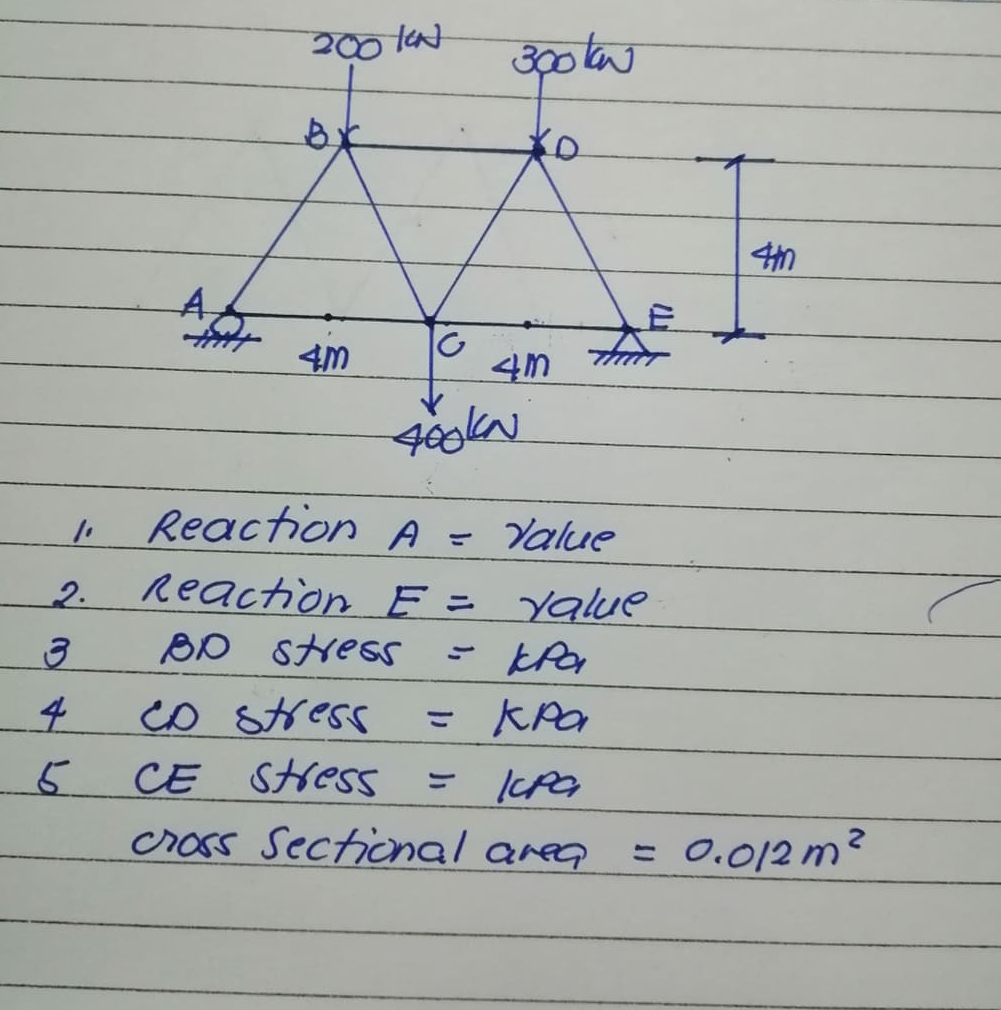 200 kN
300 kN
B
D
4m
A
E
4m
C
4m
400 kN
1. Reaction A = Value
2. Reaction E = value
3 BD stress = kPa
4 CD stress = kPa
5 CE stress = kPa
cross sectional area = 0.012 m²